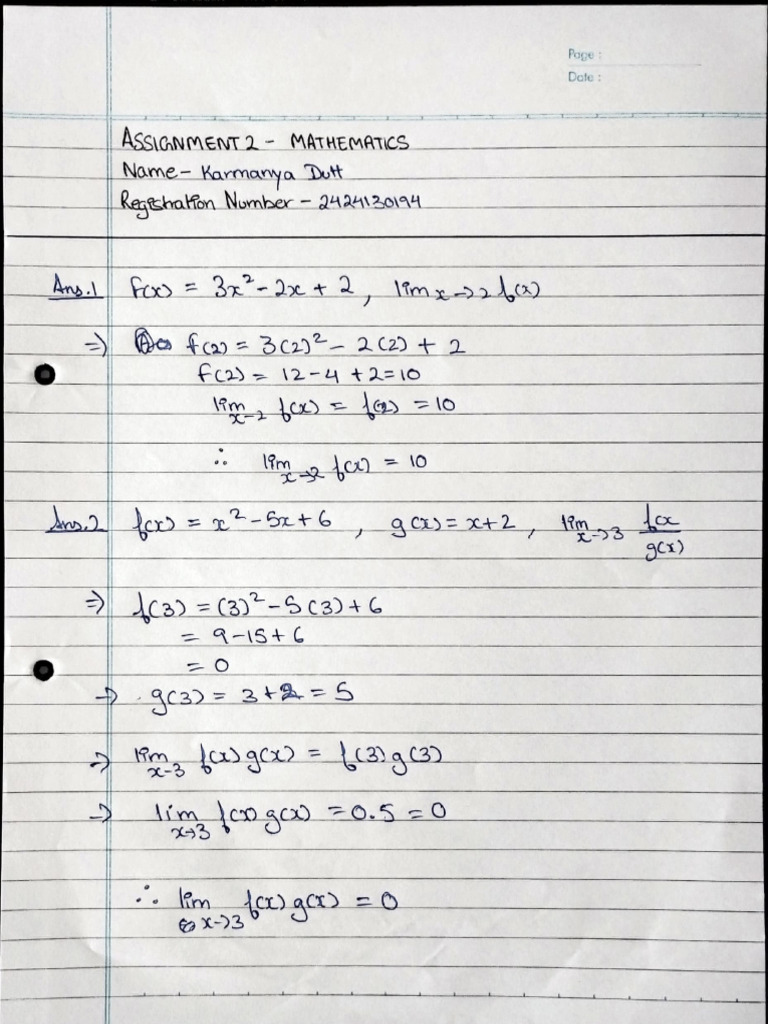 Page :
Date :
ASSIGNMENT 2 - MATHEMATICS
Name - Karmanya Dutt
Registration Number - 2424130194
Ans.1 f(x) = 3x² - 2x + 2, lim x→2 f(x)
⇒ f(2) = 3(2)² - 2(2) + 2
f(2) = 12 - 4 + 2 = 10
lim x-2 f(x) = f(2) = 10
∴ lim x→2 f(x) = 10
Ans.2 f(x) = x² - 5x + 6, g(x) = x + 2, lim x→3 f(x / g(x)
⇒ f(3) = (3)² - 5(3) + 6
= 9 - 15 + 6
= 0
→ g(3) = 3 + 2 = 5
⇒ lim x-3 f(x) g(x) = f(3) g(3)
→ lim x→3 f(x) g(x) = 0.5 = 0
∴ lim x→3 f(x) g(x) = 0